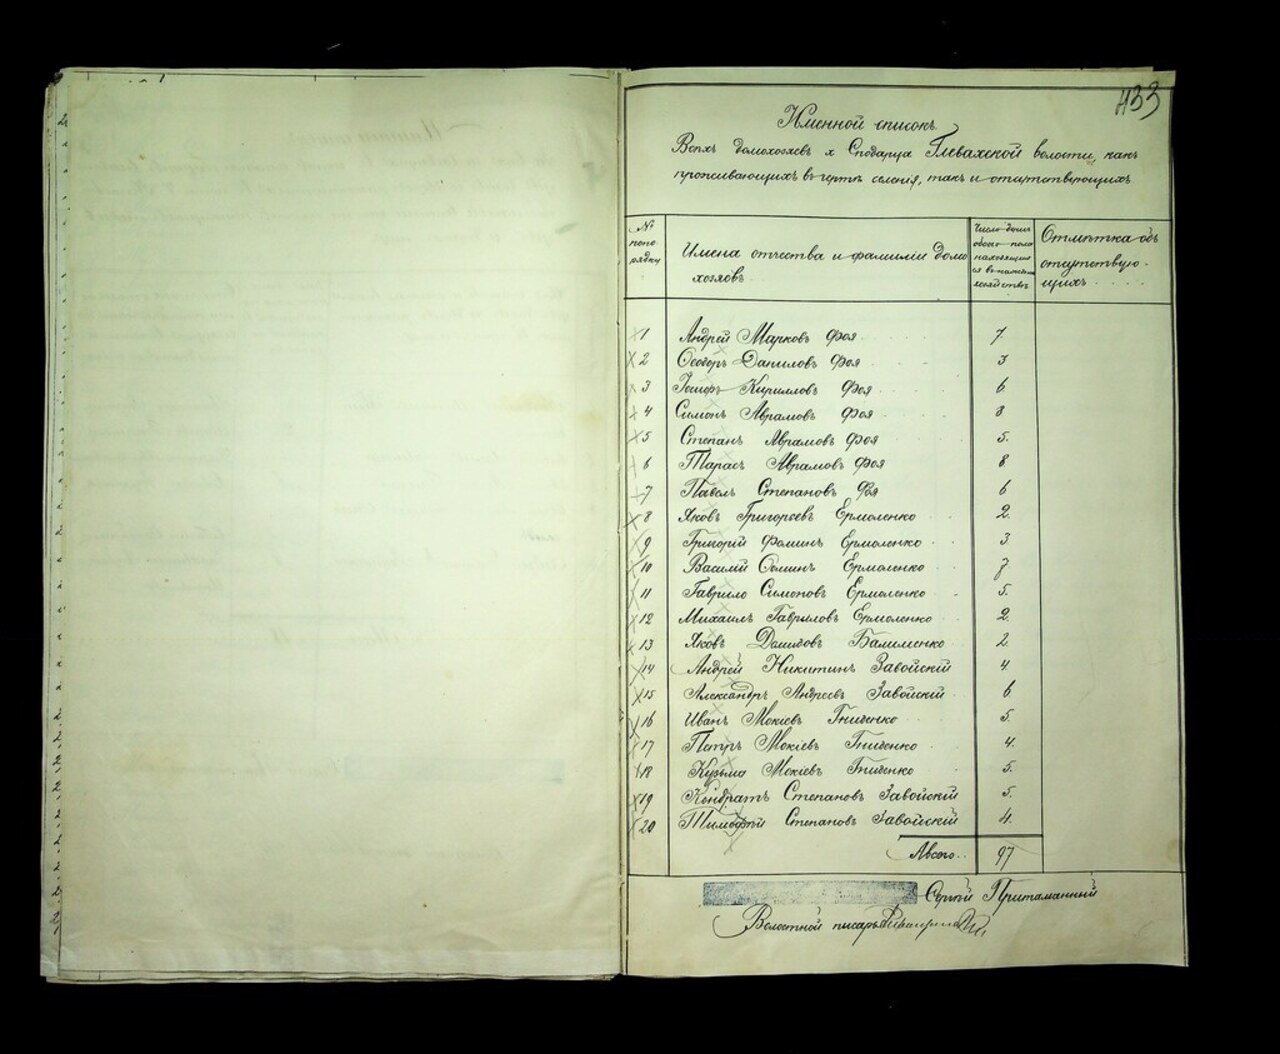 433
Именной списокъ
Всѣхъ домохозяевъ х Сподарца Глевахской волости, какъ
проживающихъ въ чертѣ селенія, такъ и отсутствующихъ
№ по по рядку
Имена отчества и фамиліи домо
хозяевъ
Число душъ
обоего пола
находящих
ся въ
хозяйствѣ
Отмѣтка объ
отсутствую-
щихъ
1 Андрей Марковъ Фоя 7.
2 Ѳеодоръ Даниловъ Фоя 3
3 Іосифъ Кирилловъ Фоя 6.
4 Симонъ Аврамовъ Фоя 8
5 Степанъ Аврамовъ Фоя 5.
6 Тарасъ Аврамовъ Фоя 8.
7 Павелъ Степановъ Фоя 6
8 Яковъ Григорьевъ Ермоленко 2.
9 Григорій Фоминъ Ермоленко 3.
10 Василій Ѳоминъ Ермоленко 7.
11 Гаврило Симоновъ Ермоленко 5.
12 Михаилъ Гавриловъ Ермоленко 2.
13 Яковъ Бамименко 2.
14 Андрей Никитинъ Завойскій 4.
15 Александръ Андреевъ Завойскій 6
16 Иванъ Мокіевъ Гниденко 5.
17 Петръ Мокіевъ Гниденко 4.
18 Кузьма Мокіевъ Гниденко 5.
19 Кондратъ Степановъ Завойскій 5.
20 Тимофѣй Степановъ Завойскій 4.
Всего.. 97
Сергій Притаманный
Волостной писарь